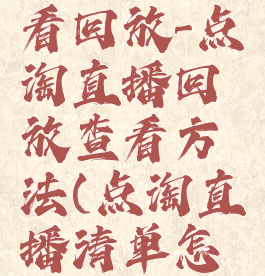 看回放-点
淘直播回
放查看方
法(点淘直
播清单怎